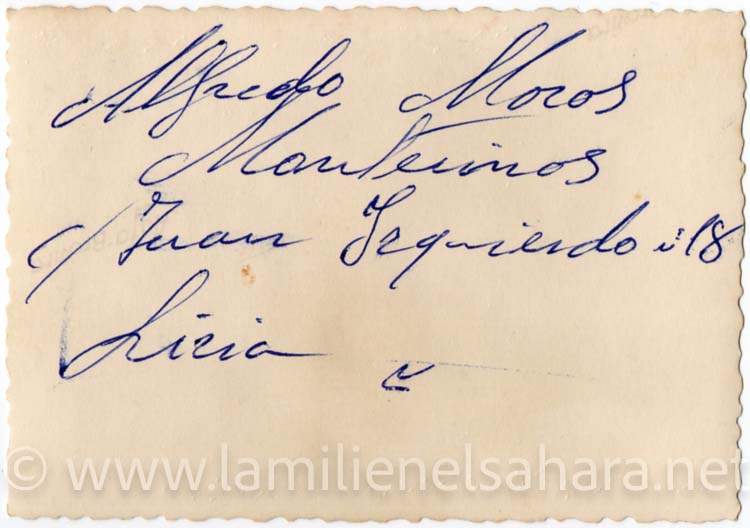 Alfredo Moros
Montesinos
C/ Juan Izquierdo nº 18
Liria
© www.lamilienelsahara.net